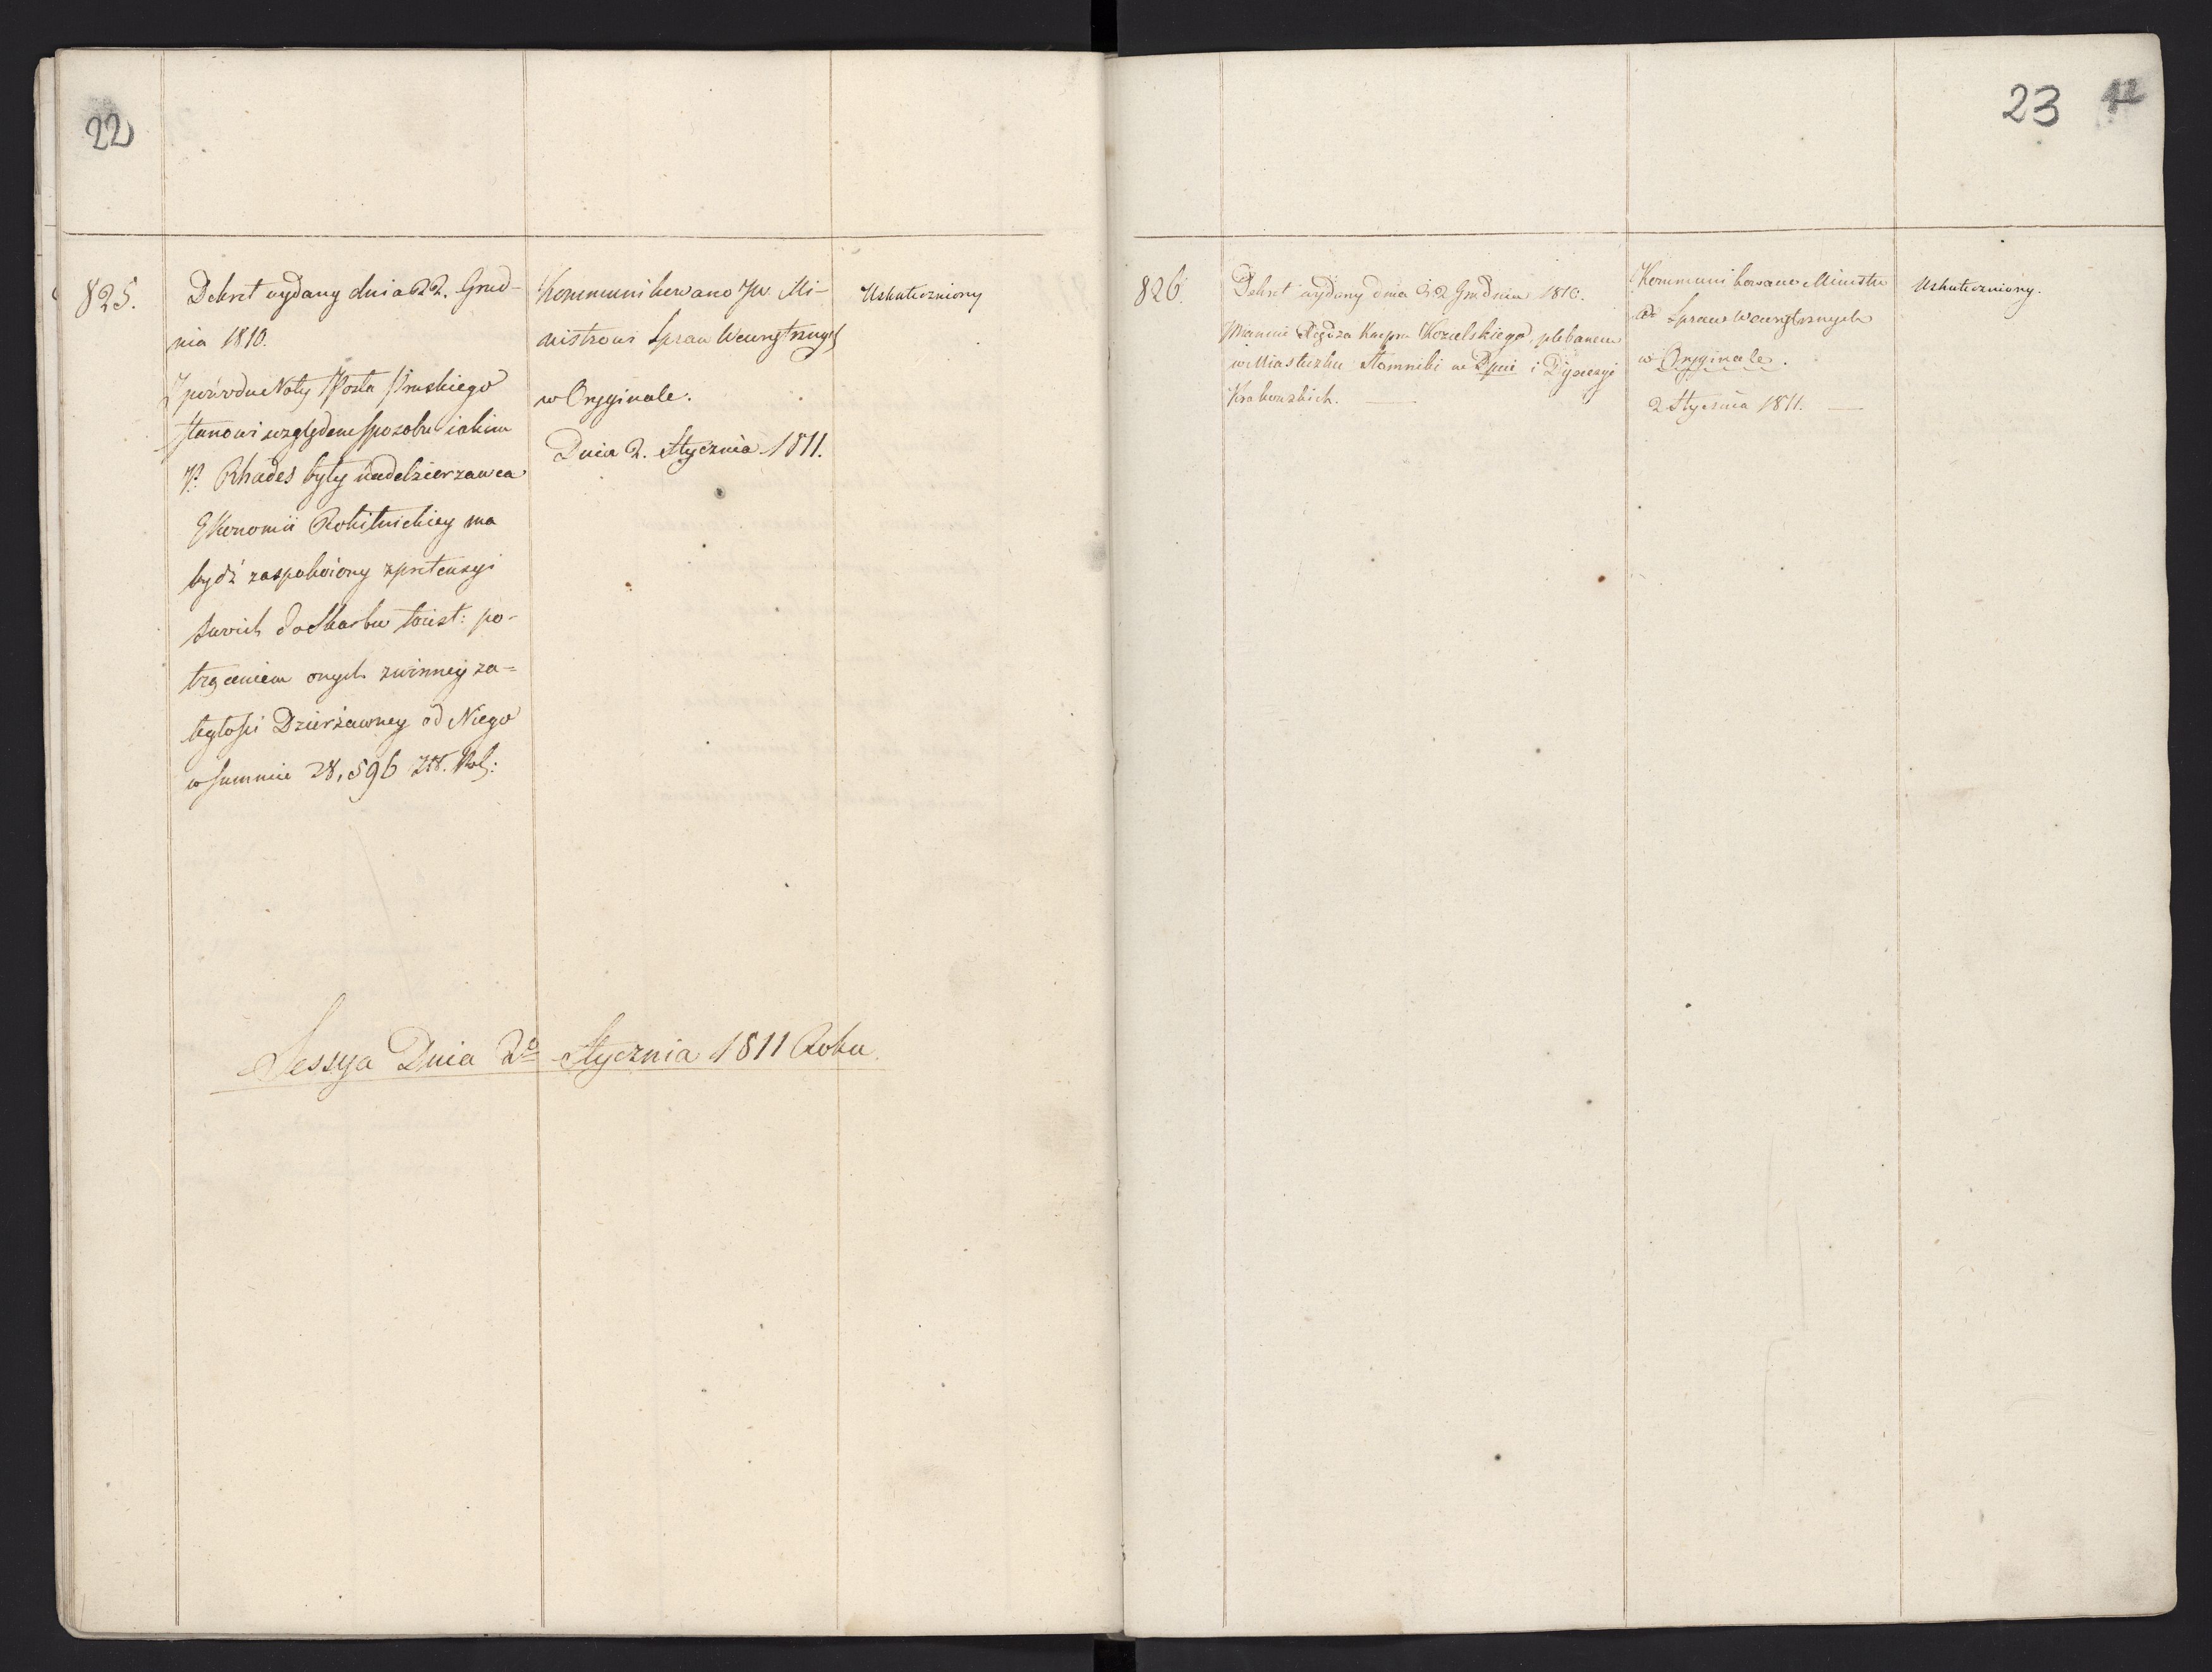 22
825.
Dekret wydany dnia 22. Grud-
nia 1810.
Z powodu Noty Posła Pruskiego
stanowi względem sposobu iakim
P. Rhades były naddzierzawca
Ekonomii Rokitnickiey ma
bydź zaspokoiony z pretensyi
swoich do Skarbu toiest: po-
trąceniem onych z winney za=
ległości Dzierżawney od Niego
w summie 28,596 Zł. Pol:
Kommunikowano JW. Mi-
nistrowi Spraw Wewnętrznych
w Oryginale.
Dnia 2. Stycznia 1811.
Uskuteczniony
Sessya Dnia 2º Stycznia 1811 Roku.
23 12
826.
Dekret wydany dnia 22 Grudnia 1810.
Mianuie Xiędza Kacpra Kozielskiego, plebanem
w Miasteczku Słomniki w Dpcie i Dyecezyi
Krakowskich. —
Kommunikowano Ministro
wi Spraw Wewnętrznych
w Oryginale.
2 Stycznia 1811. —
Uskuteczniony.